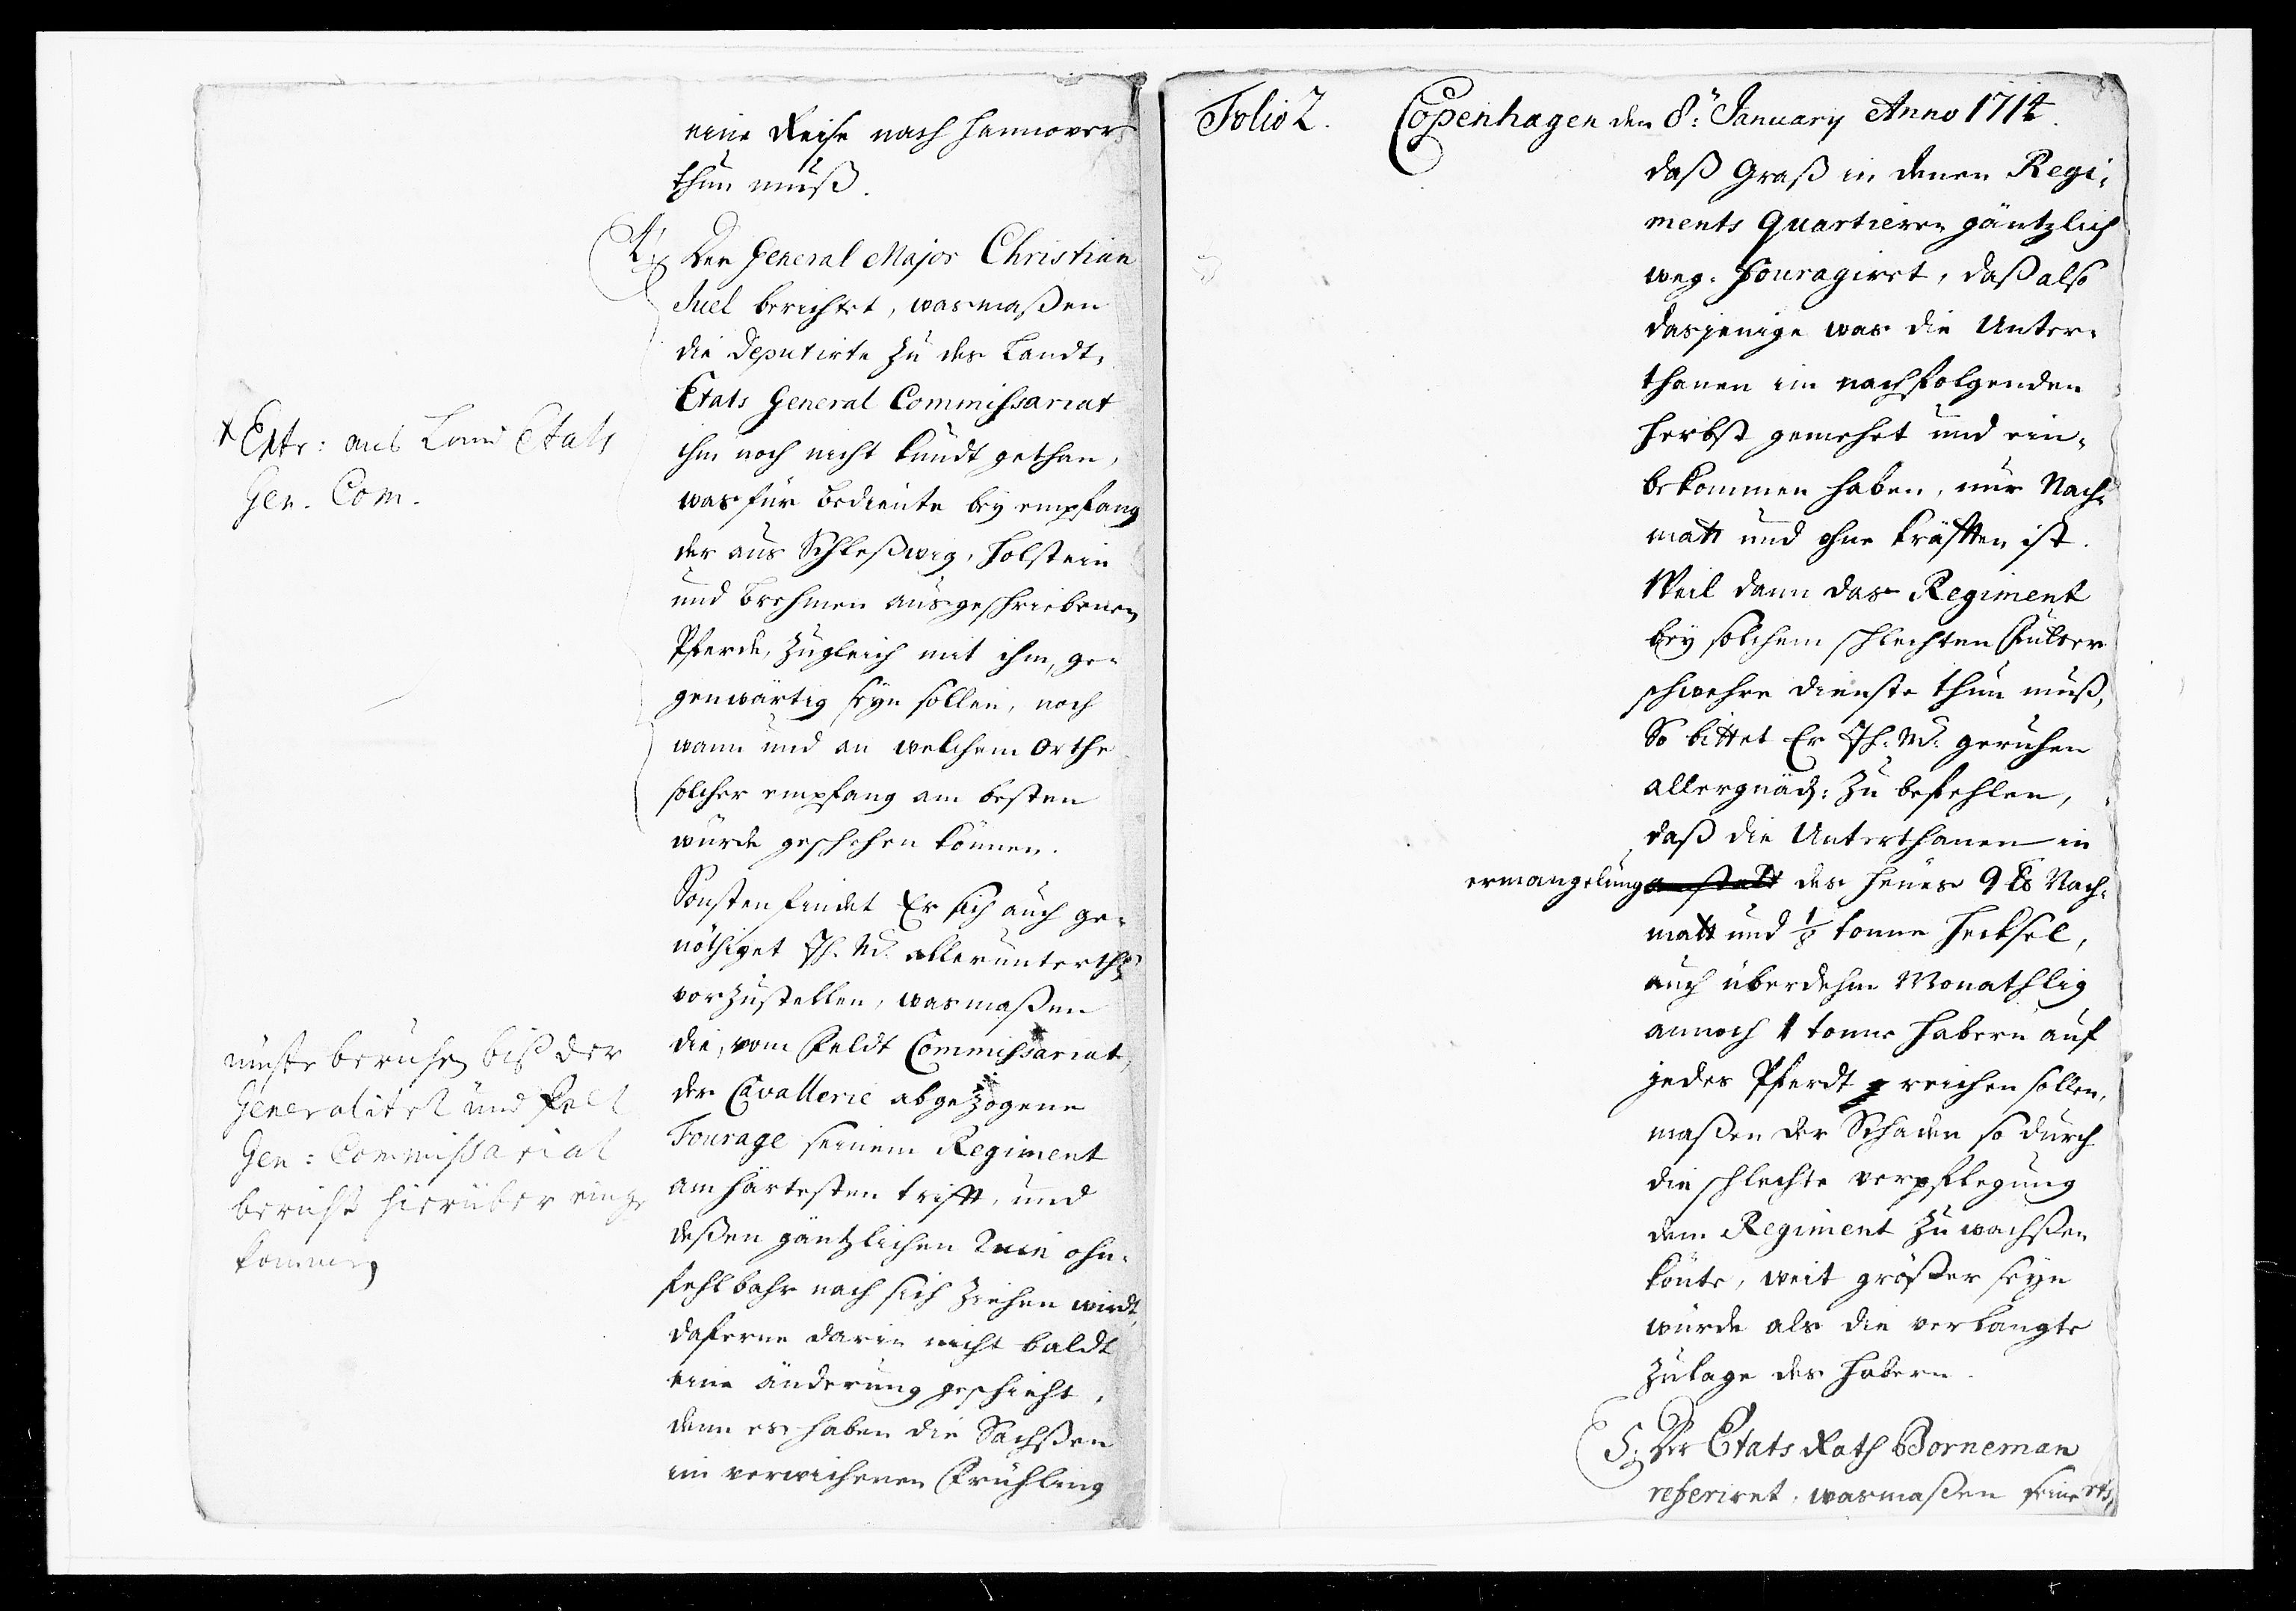 eine Reise nach Hannover
thun muß.
4. Der General Major Christian
Juel berichtet, wasmaßen
die Deputirte zu des Landt-
Etats General Commissariat
ihm noch nicht kundt gethan,
was für Bediente bey empfang
der aus Schleßwig, Holstein
und Brehmen ausgeschriebenen
Pferde, zugleich mit ihm, ge-
genwärtig seyn sollen, noch
wann und an welchem Orthe
solcher empfang am besten
würde geschehen können.
Sonsten findet Er sich auch ge-
nöthiget Ih. M. allerunterth.
vorzustellen, wasmaßen
die, vom Feldt Commissariat,
der Cavallerie abgezogene
Fourage seinem Regiment
am härtesten trifft, und
deßen gäntzlichen Ruin ohn-
fehlbahr nach sich ziehen wirdt,
daferne darin nicht baldt
eine änderung geschieht,
denn es haben die Sachßen
im verwichenen Frühling
+ Extr: aus Land Etats
Gen. Com.
muste beruhen biß der
Generalitet und Felt
Gen: Commissariat
bericht hierüber einge
kommen
Folio 2. Copenhagen den 8: January Anno 1714.
daß Graß in denen Regi-
ments Quartieren gäntzlich
weg-fouragiret, daß also
dasjenige was die Unter-
thanen im nachfolgenden
Herbst gemehet und ein-
bekommen haben, nur Nach-
matt und ohne Kräfften ist.
Weil dann das Regiment
bey solchem schlechten Futter
schwehre Dienste thun muß,
So bittet Er Ih. M. geruhen
allergnäd: zu befehlen,
daß die Unterthanen in
ermangelung anstatt des Heues 9 lb Nach-
matt und 1/8 tonne Hecksel,
auch überdehm Monathlig
annoch 1 tonne Habern auf
jedes Pferdt reichen sollen,
maßen der Schaden so durch
die schlechte verpflegung
dem Regiment zu wachßen
könte, weit größer seyn
würde als die verlangte
Zulage des Habern.
5. Der Etats Rath Borneman
referiret, wasmaßen seine